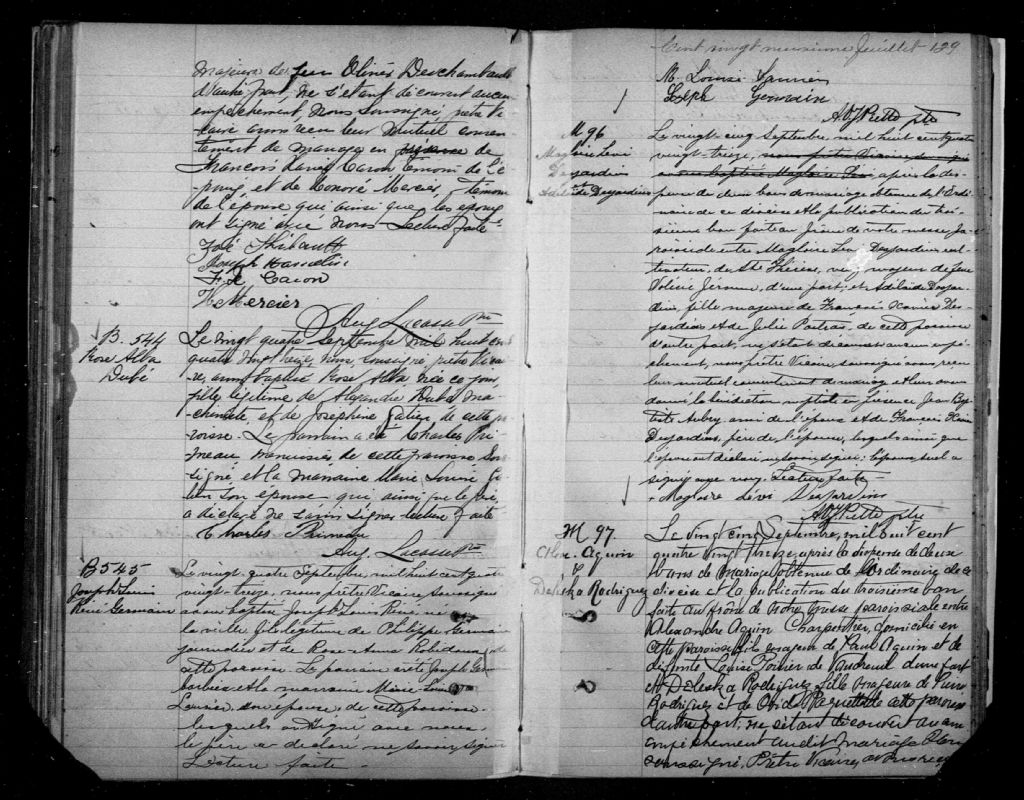 majeure de feu Olivès Deschambault
d'autre part, ne s'étant découvert aucun
empêchement, nous soussigné, prêtre Vi-
caire avons reçu leur mutuel consen-
tement de mariage en présence de
François Xavier Caron témoin de l'é-
poux, et de Honoré Mercier, témoin
de l'épouse qui ainsi que les époux
ont signé avec nous. Lecture faite
José Thibault
Joseph
F. X. Caron
H Mercier
Aug. Lacasse Ptre
B. 544
Rose Alba
Dubé
Le vingt quatre Septembre mil huit cent
quatre vingt treize, nous, soussigné, prêtre Vicai-
re, avons baptisé Rose Alba née ce jour,
fille légitime de Alexandre Dubé ma-
chiniste, et de Joséphine de cette pa-
roisse. Le parrain a été Charles Pri-
meau menuisier de cette paroisse sous-
signé et la marraine Marie Louise
son épouse qui ainsi que le père
a déclaré ne savoir signer. Lecture faite
Charles Primeau
Aug. Lacasse Ptre
B 545
Joseph Louis
René Germain
Le vingt-quatre Septembre, mil huit cent quatre
vingt-treize, nous prêtre Vicaire soussigné
avons baptisé Joseph Louis René, né
la veille, fils légitime de Philippe Germain
journalier et de Rose-Anna Robidoux de
cette paroisse. Le parrain a été Joseph Germain
barbier et la marraine Marie Louise
Laurier son épouse de cette paroisse
lesquels ont signé avec nous.
le père a déclaré ne savoir signer
Lecture faite.
Cent vingt neuvième feuillet 129
M. Louise Laurier
Joseph Germain
Ptre
M 96
Magloire Lévi
Desjardins
et
Adélaïde Desjardins
Le vingt-cinq Septembre, mil huit cent quatre
vingt-treize, nous prêtre Vicaire soussigné
avons baptisé Magloire Lévi après la dis-
pense de deux bans de mariage obtenue de l'Ordi-
naire de ce diocèse et la publication du troi-
sième ban faite au prône de notre messe pa-
roissiale entre Magloire Lévi Desjardins cul-
tivateur, de Ste Thérèse, veuf majeur de feue
Jerome, d'une part; et Adélaïde Desjar-
dins fille majeure de François Xavier Des-
jardins et de Julie Poitras, de cette paroisse
d'autre part, ne s'étant découvert aucun empê-
chement, nous prêtre Vicaire, soussigné avons re-
çu leur mutuel consentement de mariage et leur avons
donné la bénédiction nuptiale en présence Jean Bap-
tiste Aubry, ami de l'époux et de François Xavier
Desjardins, père de l'épouse, lesquels ainsi que
l'épouse ont déclaré ne savoir signer: l'époux seul a
signé avec nous. Lecture faite.
Magloire Lévi Desjardins
Ptre
M 97.
Alex. Aquin
&
Deleska Rodriguez
Le vingt cinq Septembre, mil huit cent
quatre vingt treize, après la dispense de deux
bans de mariage obtenue de l'Ordinaire de ce
diocèse et la publication du troisième ban
faite au prône de notre messe paroissiale entre
Alexandre Aquin Charpentier, domicilié en
cette paroisse fils majeur de Paul Aquin et de
défunte Louise Poirier de Vaudreuil d'une part
et Deleska Rodriguez fille majeure de Pierre
Rodriguez et de Paquette de cette paroisse
d'autre part, ne s'étant découvert aucun
empêchement au dit mariage Nous
soussigné, Prêtre Vicaire, avons reçu